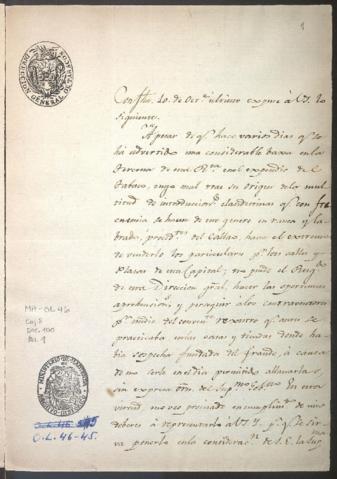 1
DIRECCION GENERAL DE
Con fha. 10. de Oct.e ultimo expuse à V.I. lo
siguiente.
"Apesar de q.e hace varios dias q.e se
ha advertido una considerable baxa en la
de esta R.ta en el expendio de
Tabaco, cuyo mal trae su origen de la mul
titud de introducion.s clandestinas q.e con fre
cuencia se hacen de este genero en rama y la
brado, del Callao, hasta el extremo
de venderlo los particulares p.r las calles y
Plazas de esta Capital; no pudo el
de esta Direccion gral, hacer las oportunas
aprehencion.s y perseguir à los contraventores
p.r medio del registro q.e antes se
practicaba en las casas y tiendas donde ha
bia sospecha fundada del fraude, à causa
de no serle en el dia permitido allanarlas
sin expresa orn. del Sup.mo Gob.no En esta
virtud, me veo precisado en cumplim.to de mis
deberes à representarlo à V.I. p.a q.e se sir
va ponerlo en la consideraz.n de S.E. la Sup.ma
MH-OL 46
Caj. 8
Doc. 100
Fol. 1
MINISTERIO DE HACIENDA
O.L. 46-45.